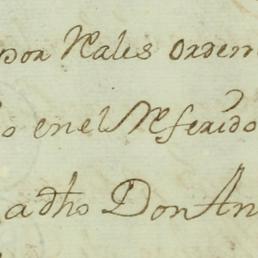 por Rales orden
o en el Referido
a dho Don An